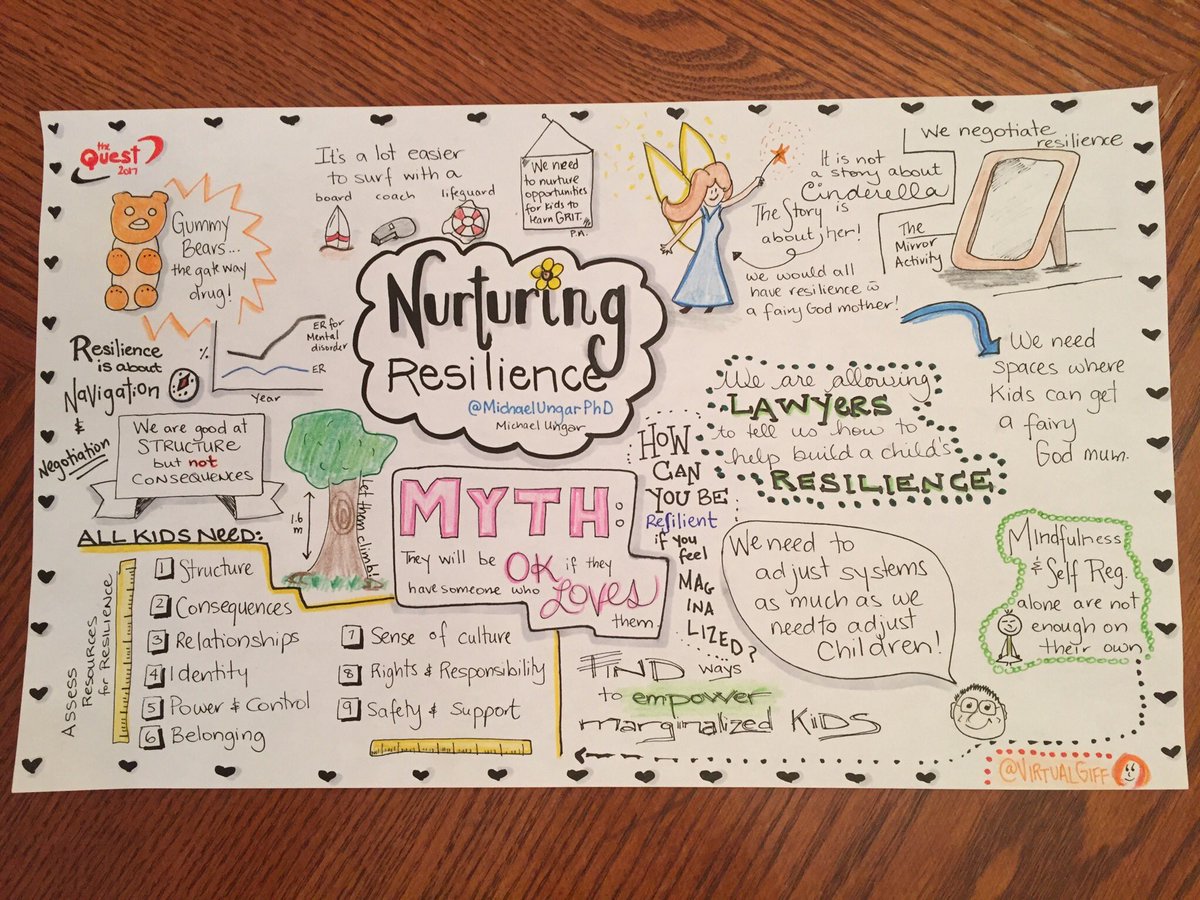 the
Quest
2017
Gummy
Bears...
the gate way
drug!
It's a lot easier
to surf with a
board coach lifeguard
We need
to nurture
opportunities
for kids to
learn GRIT.
P.N.
It is not
a story about
Cinderella
The Story is
about her!
we would all
have resilience w
a fairy God mother!
We negotiate
resilience
The
Mirror
Activity
Nurturing
Resilience
@MichaelUngarPhD
Michael Ungar
Resilience
is about
Navigation
&
Negotiation
%
ER for
Mental
disorder
ER
Year
We are good at
STRUCTURE
but not
CONSEQUENCES
1.6
m
Let them climb!
We need
spaces where
Kids can get
a fairy
God mum.
We are allowing
LAWYERS
to tell us how to
help build a child's
RESILIENCE
MYTH:
They will be OK if they
have someone who Loves
them.
HOW
CAN
YOU BE
Resilient
if you
feel
MAG
INA
LIZED?
ALL KIDS NEED:
ASSESS
RESOURCES
for RESILIENCE
1 Structure
2 Consequences
3 Relationships
4 Identity
5 Power & Control
6 Belonging
7 Sense of culture
8 Rights & Responsibility
9 Safety & Support
We need to
adjust systems
as much as we
need to adjust
Children!
Mindfulness
& Self Reg.
alone are not
enough on
their own
FIND ways
to empower
marginalized KIDS
@VIRTUALGIFF